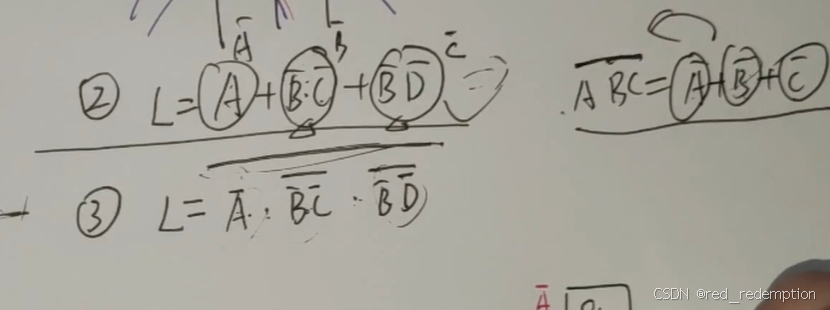 Ā B̄ C̄
② L=A+B̄·C̄+B̄D̄
$\overline{ABC}=\overline{A}+\overline{B}+\overline{C}$
③ $L=\overline{\overline{A}\cdot\overline{\overline{B}\,\overline{C}}\cdot\overline{\overline{B}\,\overline{D}}}$
Ā
CSDN @red_redemption